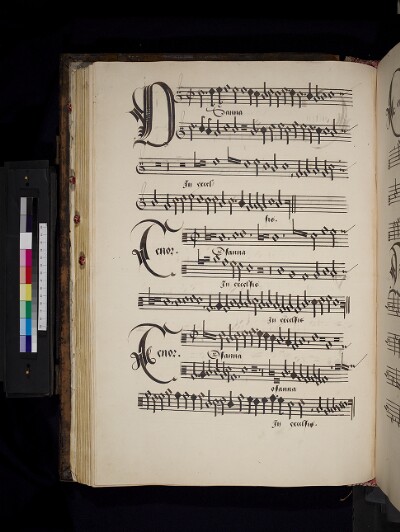 Osanna
In excel
sis.
Tenor.
Osanna
In excelsis
In excelsis
Tenor.
Osanna
osanna
In excelsis.